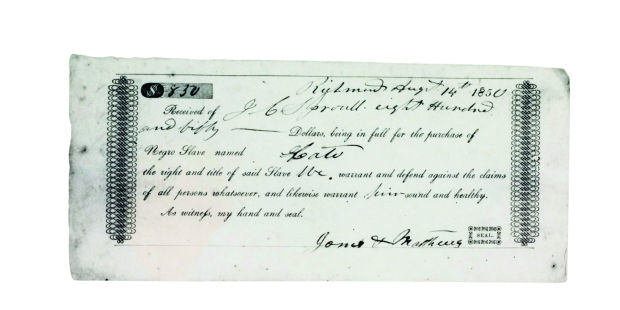 $ 850
Richmond Augt 14th 1850
Received of J C Sproull. eight Hundred
and fifty — Dollars, being in full for the purchase of
Negro Slave named Cato
the right and title of said Slave We. warrant and defend against the claims
of all persons whatsoever, and likewise warrant him sound and healthy.
As witness, my hand and seal.
Jones & Matthews SEAL.